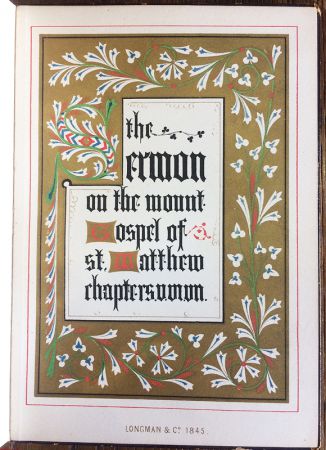 the
Sermon
on the mount
Gospel of
st. Matthew
chapters v vi vii.
LONGMAN & Co. 1845.